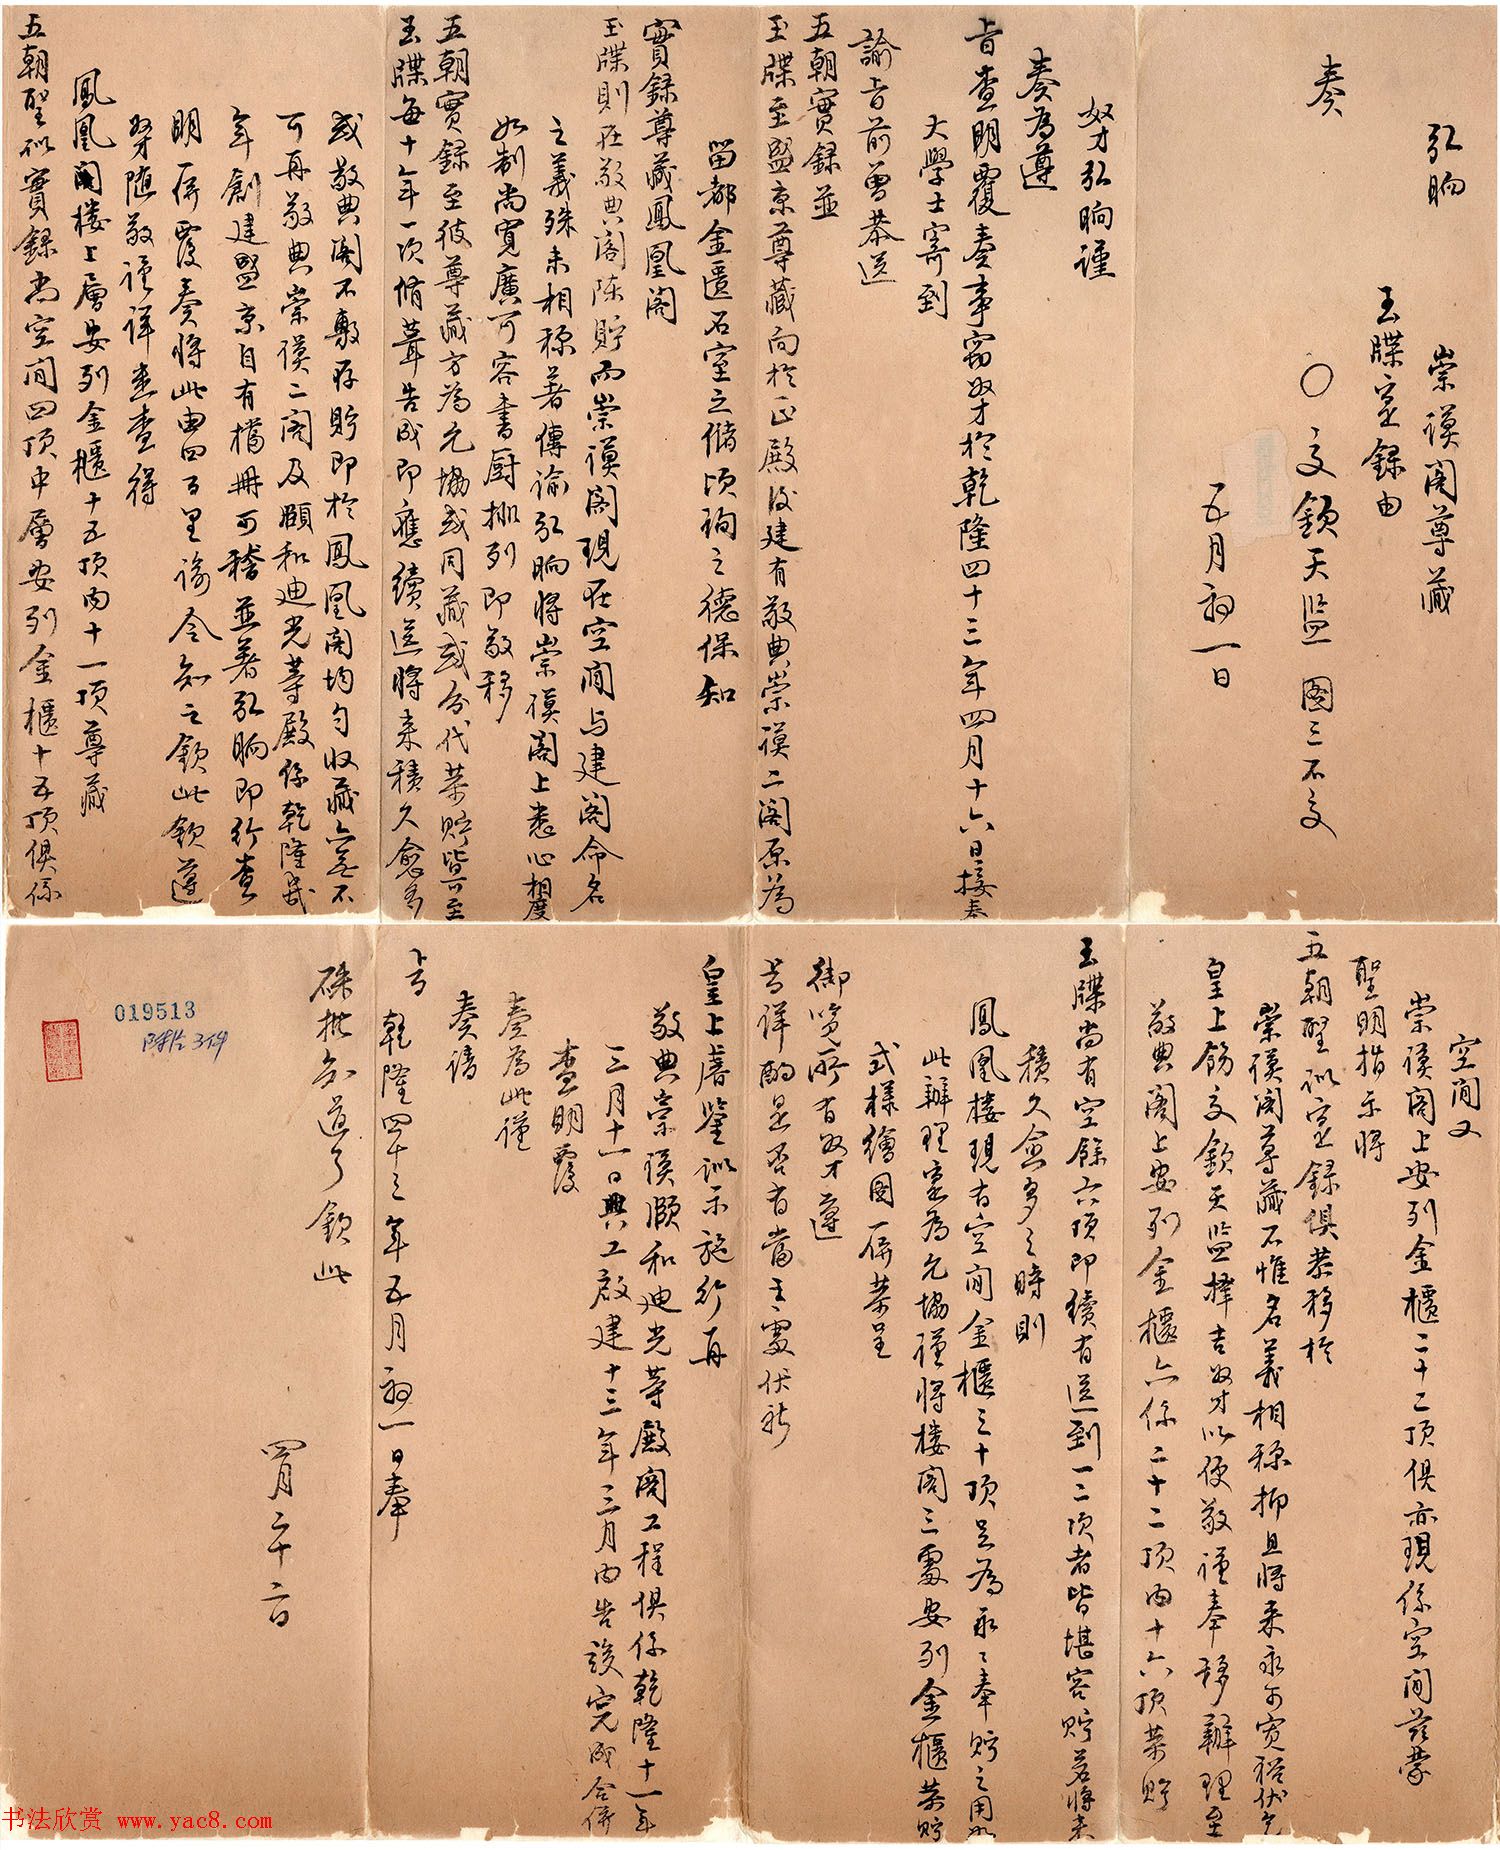 弘晌
崇謨閣尊藏
玉牒寔録由
奏
〇 交欽天監 圖三不交
五月初一日
奴才弘晌謹
奏為遵
旨查明覆奏事竊奴才於乾隆四十三年四月十六日接奉
大學士寄到
諭旨前曾恭送
五朝實録並
玉牒至盛京尊藏向於正殿後建有敬典崇謨二閣原為
留都金匱石室之儲頃詢之德保知
實録尊藏鳳凰閣
玉牒則在敬典閣陳貯而崇謨閣現在空閒与建閣命名
之義殊未相称著傳諭弘晌将崇謨閣上悉心相度
如制尚寬廣可容書厨排列即敬移
五朝實録至彼尊藏方為允協或同藏或分代恭貯皆可至
玉牒每十年一次脩葺告成即應續送将来積久愈多
或敬典閣不敷存貯即於鳳凰閣均勻收藏亦無不
可再敬典崇謨二閣及頤和迪光等殿係乾隆幾
年創建盛京自有檔冊可稽並著弘晌即行查
明併覆奏将此由四百里諭令知之欽此欽遵
奴才随敬謹詳悉查得
鳳凰閣楼上層安列金櫃十五頂内十一頂尊藏
五朝聖訓實録尚空閒四頂中層安列金櫃十五頂俱係
空閒又
崇謨閣上安列金櫃二十二頂俱亦現係空閒茲蒙
聖明指示将
五朝聖訓寔録俱恭移於
崇謨閣尊藏不惟名義相称抑且将来永可寬裕伏乞
皇上飭交欽天監擇吉奴才以便敬謹奉移辦理至
敬典閣上安列金櫃亦係二十二頂内十六頂恭貯
玉牒尚有空餘六頂即續有送到一二頂者皆堪容貯若将来
積久愈多之時則
鳳凰楼現有空閒金櫃三十頂足為永遠奉貯之用如
此辦理寔為允協謹将楼閣三處安列金櫃恭貯
式樣繪圖一併恭呈
御覽所有奴才遵
旨詳酌是否有當之處伏祈
皇上睿鑒訓示施行再
敬典崇謨頤和迪光等殿閣工程俱係乾隆十一年
三月十一日興工啟建十三年三月内告竣完成合併
查明覆
奏為此謹
奏請
旨
乾隆四十三年五月初一日奉
硃批知道了欽此
四月二十六日
019513
书法欣赏 www.yac8.com